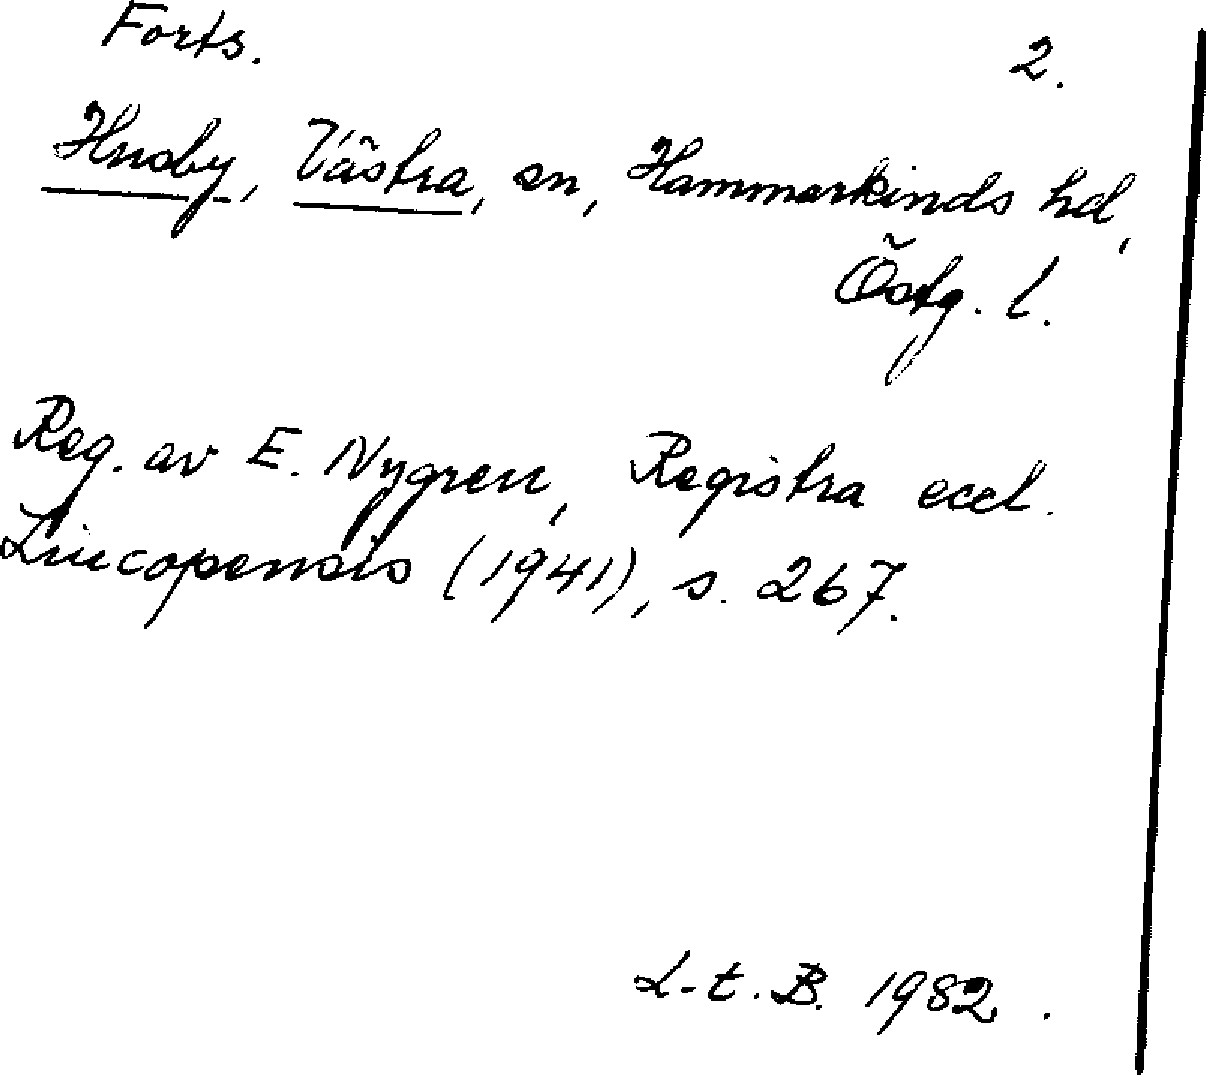 Forts. 2.
Husby, Västra, sn, Hammarkinds hd,
Östg. l.
Reg. av E. Nygren, Registra eccl.
Lincopensis (1941), s. 267.
L-t. B. 1982.